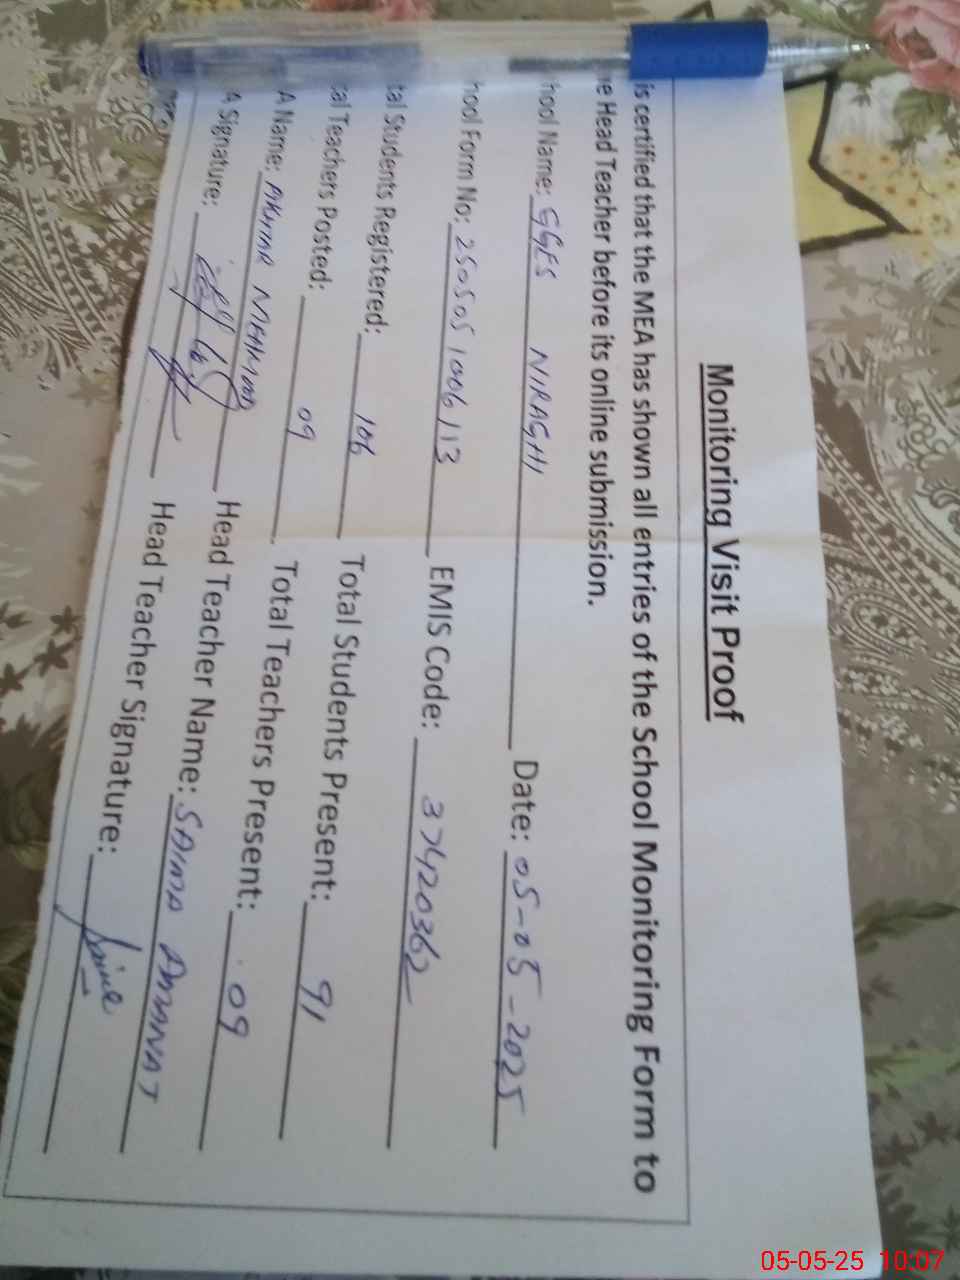 Monitoring Visit Proof
is certified that the MEA has shown all entries of the School Monitoring Form to
e Head Teacher before its online submission.
hool Name: GGES NIRAGHI Date: 05-05-2025
hool Form No: 250505 1006113 EMIS Code: 37420362
tal Students Registered: 106 Total Students Present: 91
tal Teachers Posted: 09 Total Teachers Present: 09
A Name: AKHTAR MEHMOOD Head Teacher Name: SAIMA AMANAT
A Signature: Head Teacher Signature: Saima
05-05-25 10:07